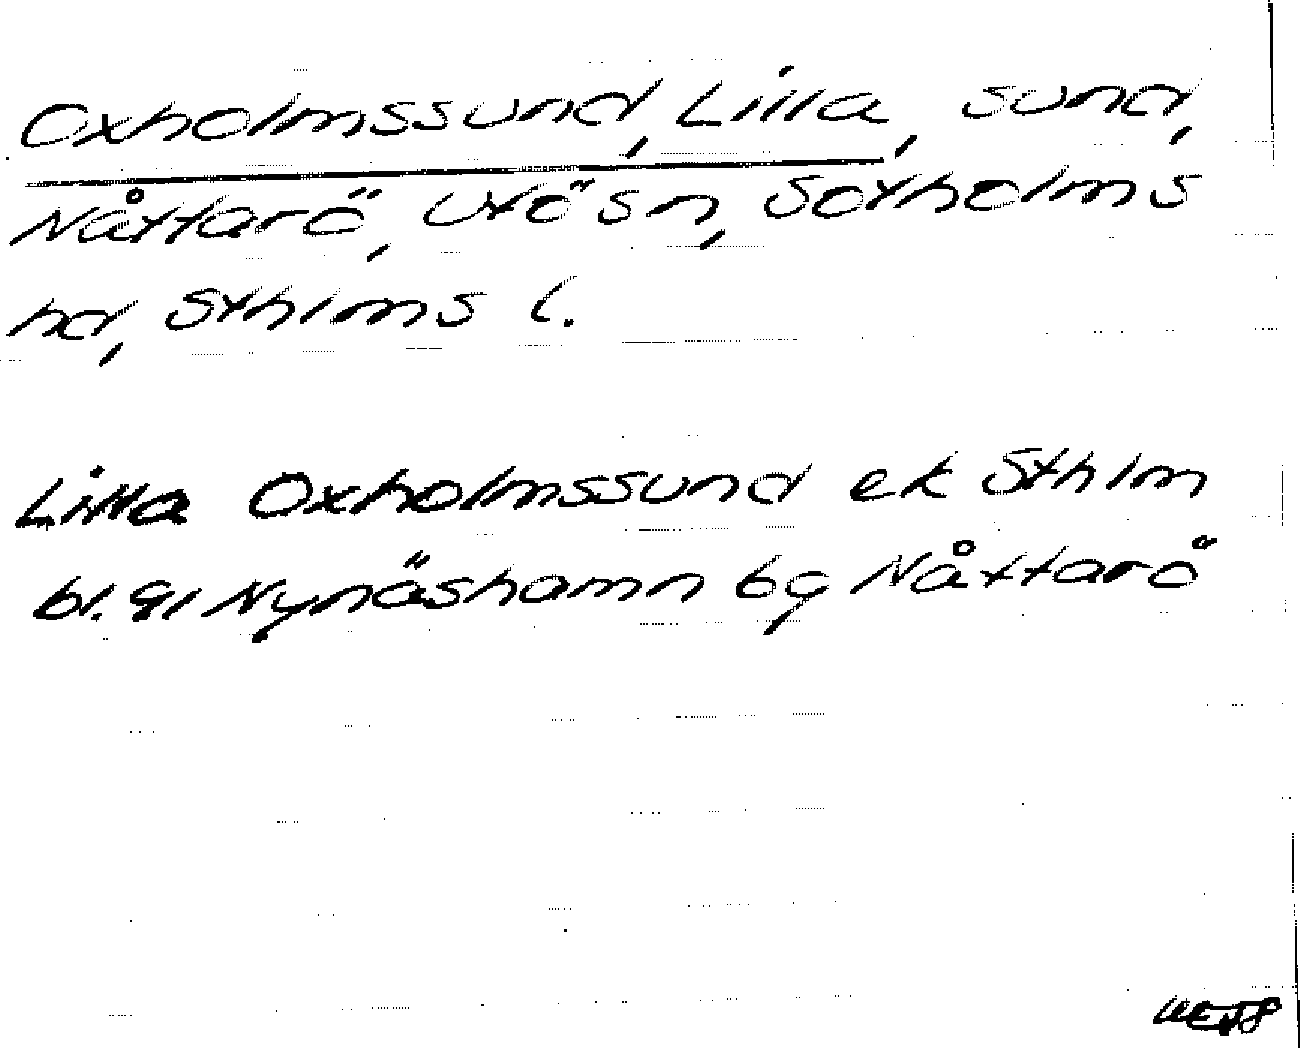 Oxholmssund, Lilla, sund,
Nåttarö, Utö sn, Sotholms
hd, Sthlms l.
Lilla Oxholmssund ek Sthlm
bl. 91 Nynäshamn bg Nåttarö